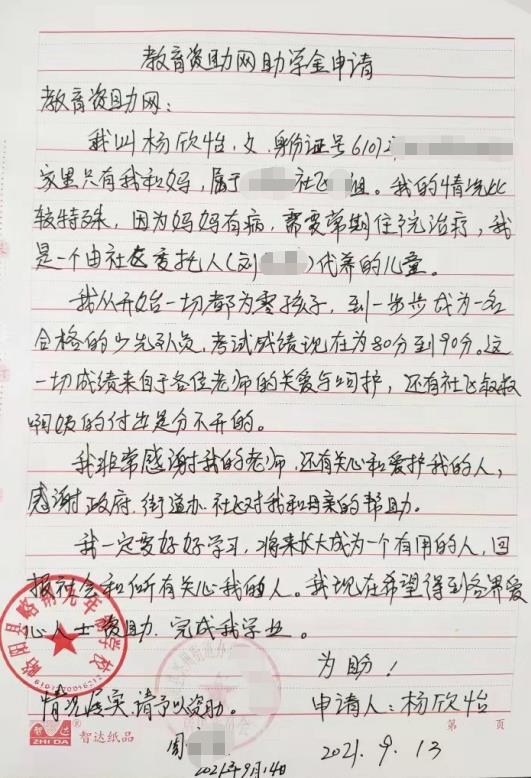 教育资助网助学金申请
教育资助网：
我叫杨欣怡，女，身份证号6107
家里只有我和妈，属于 社区 组。我的情况比
较特殊，因为妈妈有病，需要常期住院治疗，我
是一个由社区委托人(刘 )代养的儿童。
我从开始一切都为零孩子，到一步步成为一名
合格的少先队员，考试成绩现在为80分到90分。这
一切成绩来自于各位老师的关爱与呵护，还有社区叔叔
啊姨的付出是分不开的。
我非常感谢我的老师，还有关心和爱护我的人，
感谢政府、街道办、社区对我和母亲的帮助。
我一定要好好学习，将来长大成为一个有用的人，回
报社会和所有关心我的人。我现在希望得到各界爱
心人士资助，完成我学业。
为盼！
情况属实，请予以资助。
申请人：杨欣怡
周
2021年9月14日
2021.9.13
略阳县 九年制学校
智达
ZHI DA
智达纸品
第 页